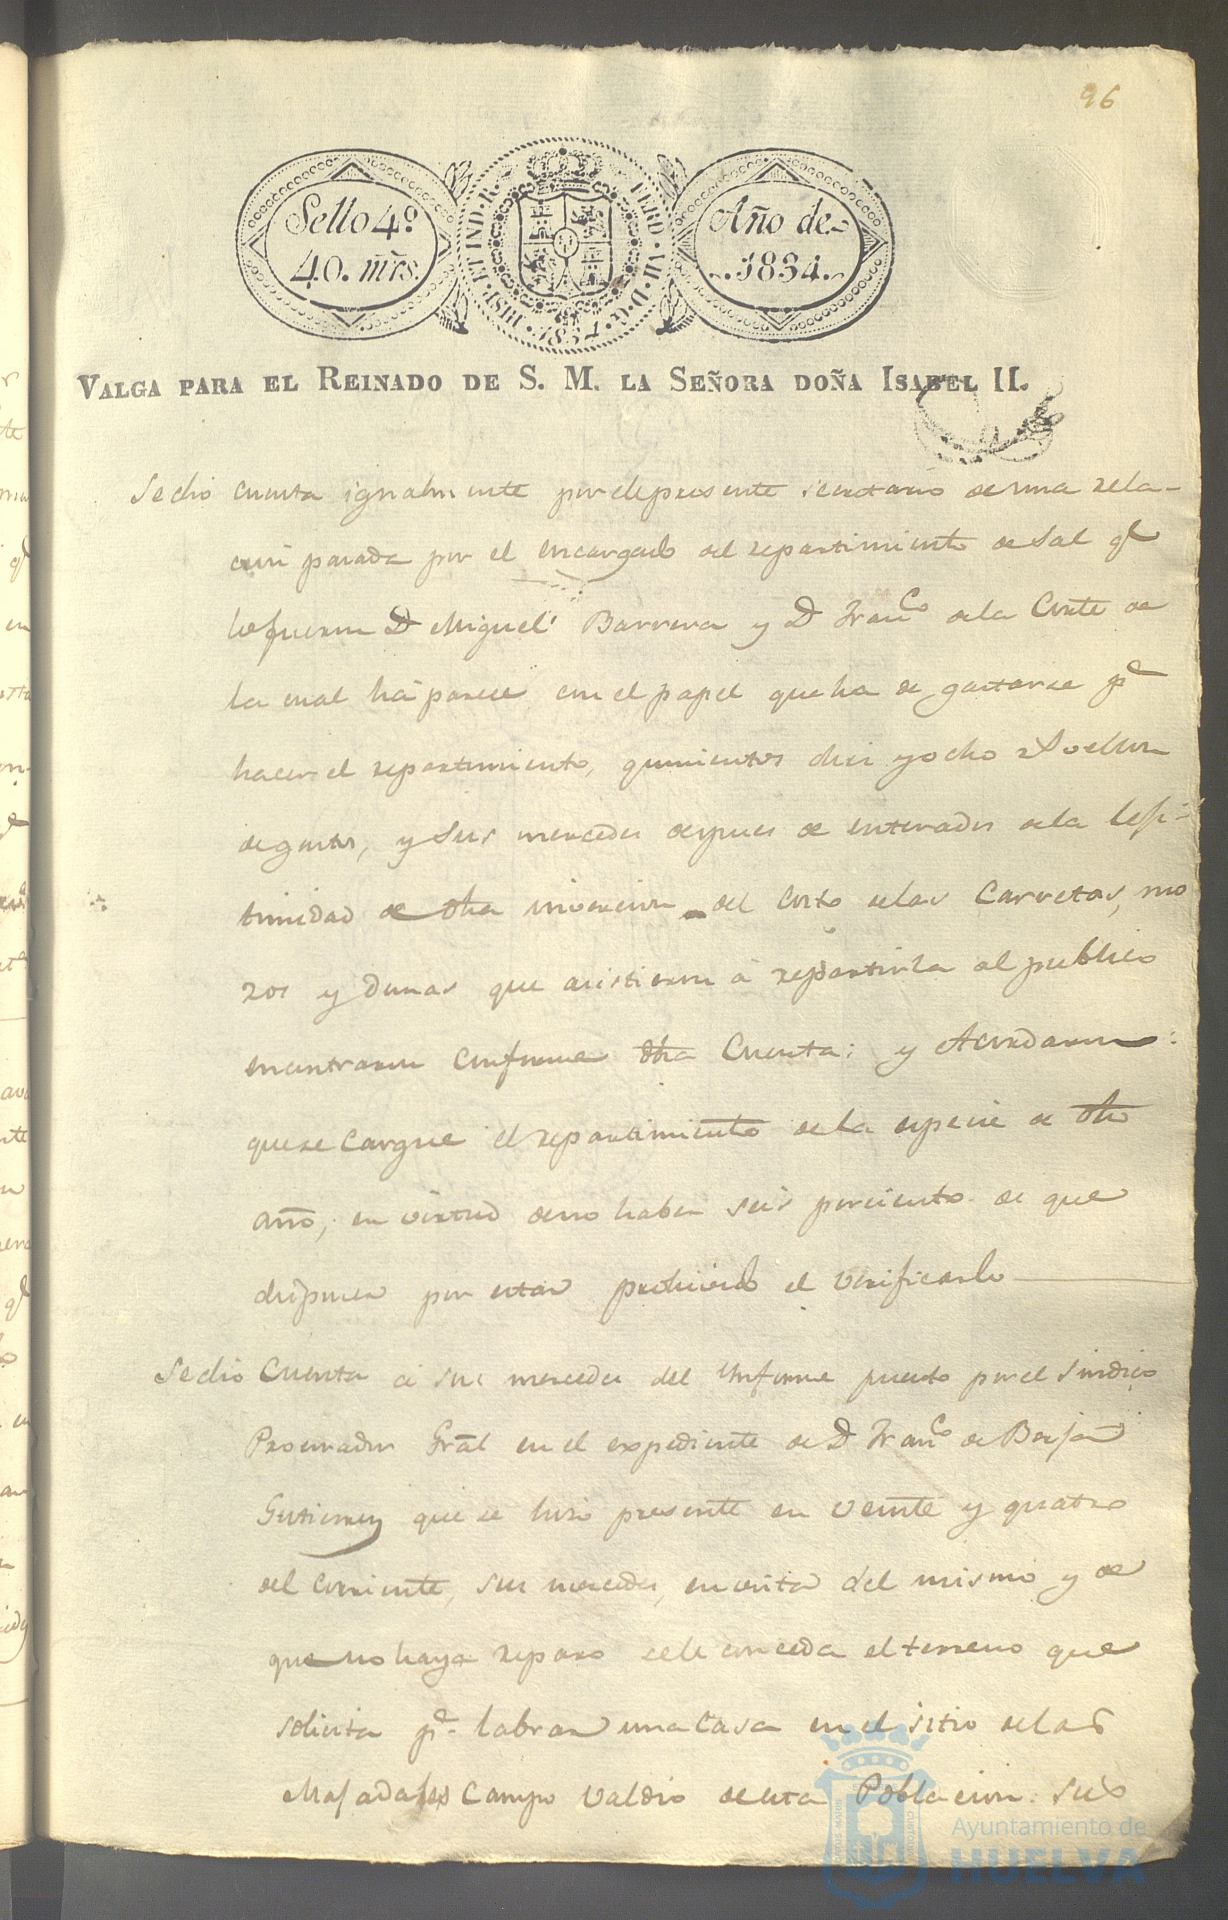 96
Sello 4º
40. mrs.
HISP. ET IND. R. FERD. VII. D. G. 1834
Año de
1834.
VALGA PARA EL REINADO DE S. M. LA SEÑORA DOÑA ISABEL II.
Se dio cuenta igualmente por el presente secretario de una rela-
cion parada por el encargado del repartimiento de Sal qe
lo fueron Dn Miguel Barrera y Dn Franco de la Corte de
la cual há parece con el papel que ha de gastarse pa
hacer el repartimiento, quinientos diez y ocho rs vellon
de gastos, y sus mercedes despues de enterados de la lefi-
timidad de dha invercion del costo de las Carretas, mo
zos y demas que asistieron á repartirla al publico
encontraron conforme dha Cuenta: y Acordaron:
que se cargue el repartimiento de la especie de dho
año, en virtud de no haber seis porciento de que
disponer por estar prohivido el verificarlo
Se dio Cuenta á sus mercedes del Ynforme puesto por el sindico
Procurador Gral en el expediente de Dn Franco de Borja
Gutierrez que se hizo presente en veinte y quatro
del corriente, sus mercedes, en vista del mismo y de
que no haya reparo se le conceda el terreno que
solicita pa labrar una Casa en el sitio de las
Majadales Campo valdio de esta Poblacion: sus
Ayuntamiento de
HUELVA